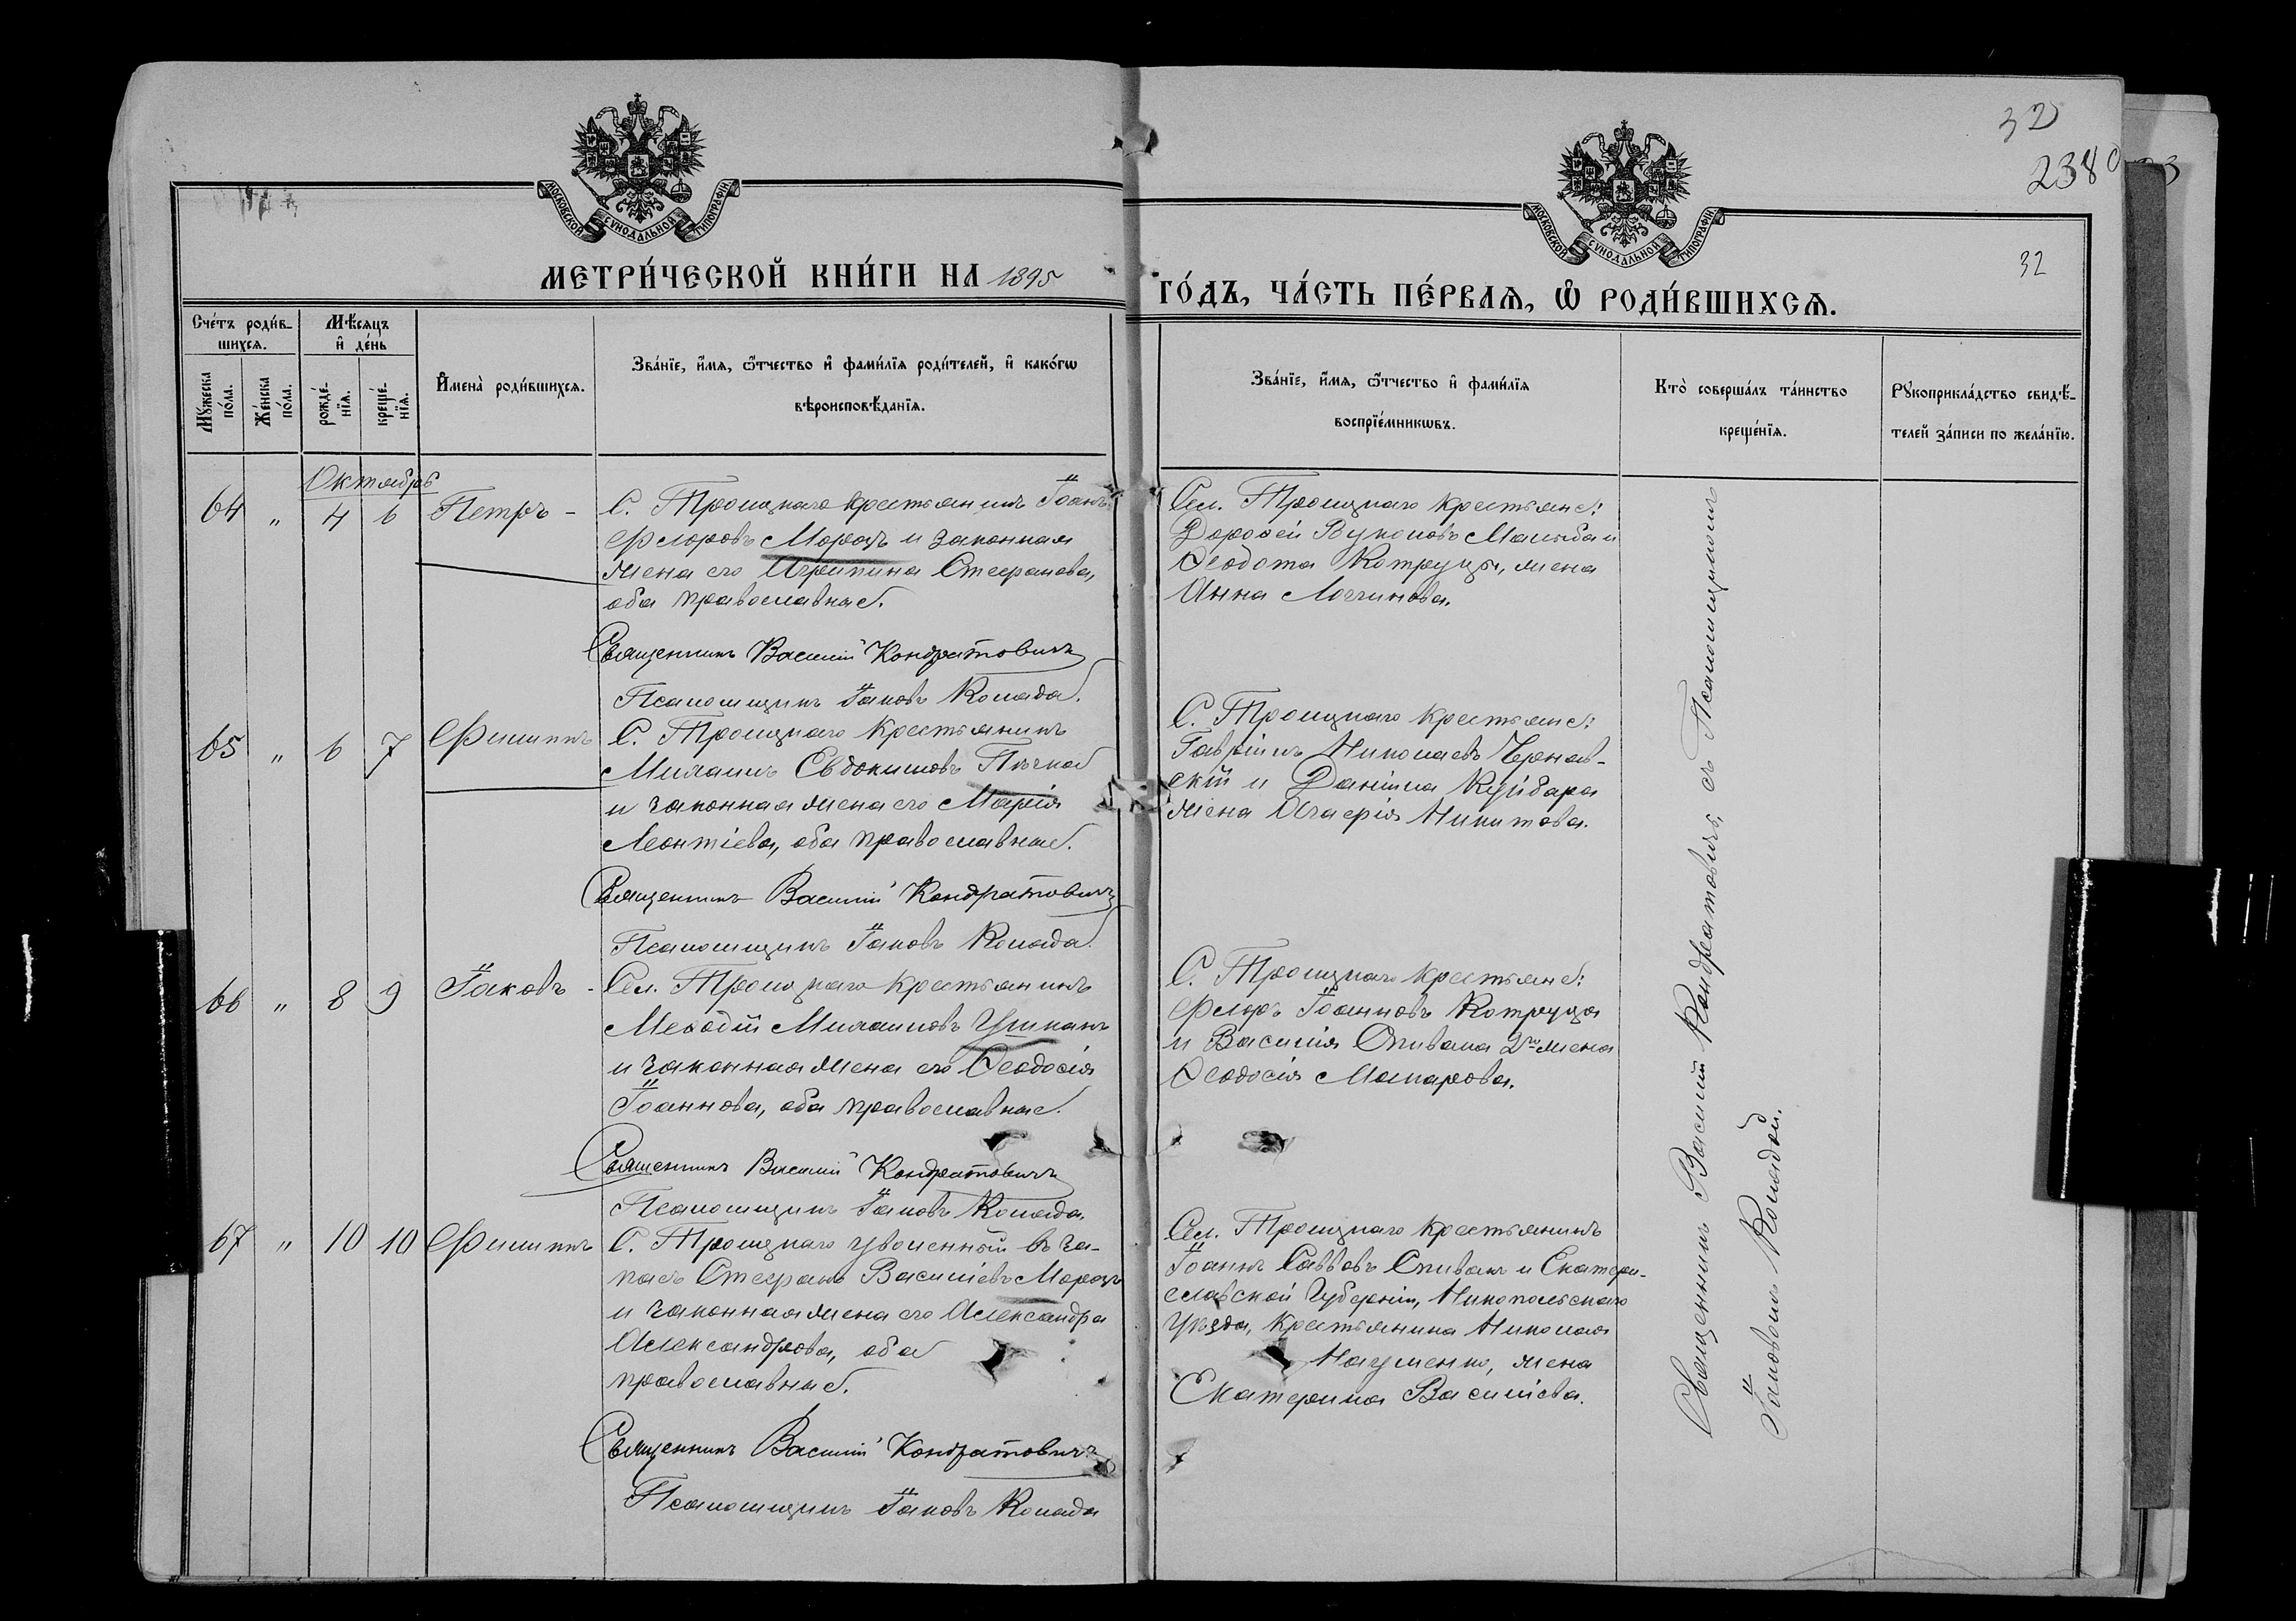 32
238
МОСКОВСКОЙ СѴНОДАЛЬНОЙ ТИПОГРАФІИ.
МОСКОВСКОЙ СѴНОДАЛЬНОЙ ТИПОГРАФІИ.
32
МЕТРИ́ЧЕСКОЙ КНИ́ГИ НА 1895
ГО́ДЪ, ЧА́СТЬ ПЕ́РВАЯ, Ѿ РОДИ́ВШИХСЯ.
Сче́тъ роди́в-
шихся.
Мꙋжеска по́ла.
Же́нска по́ла.
Мѣ́сяцъ
и҆ де́нь
рожде́-
нїя.
креще́-
нїя.
И҆мена̀ роди́вшихся.
Зва́нїе, и҆́мя, ѻ҆́тчество и҆ фами́лїя роди́телей, и҆ како́гѡ
вѣроисповѣ́данїя.
Зва́нїе, и҆́мя, ѻ҆́тчество и҆ фами́лїя
воспрїе́мникѡвъ.
Кто̀ соверша́лъ та́инство
креще́нїя.
Рꙋкоприкла́дство свидѣ́-
телей за́писи по жела́нїю.
Октябрь
64 " 4 6 Петръ -
С. Троицкаго крестьянинъ Іоаннъ
Флоровъ Морозъ и законная
жена его Агрипина Стефанова,
оба православные.
Священникъ Василій Кондратовичъ
Псаломщикъ Іаковъ Коллада.
Сел. Троицкаго крестьяне:
Дороѳей Вуколовъ и
Ѳеодота Котруцы, жена
Анна Логгинова.
65 " 6 7 Филиппъ
С. Троицкаго крестьянинъ
Михаилъ Евдокимовъ
и законная жена его Марія
Леонтіева, оба православные.
Священникъ Василій Кондратовичъ
Псаломщикъ Іаковъ Коллада.
С. Троицкаго крестьяне:
Гавріилъ Николаевъ Чернав-
скій и Даніила Куйбара
жена Никитова.
66 " 8 9 Іаковъ -
Сел. Троицкаго крестьянинъ
Меѳодій Михаиловъ
и законная жена его Ѳеодосія
Іоаннова, оба православные.
Священникъ Василій Кондратовичъ
Псаломщикъ Іаковъ Коллада.
С. Троицкаго крестьяне:
Флоръ Іоанновъ Котруца
и Василія Спивака жена
Ѳеодосія Макарова.
67 " 10 10 Филиппъ
С. Троицкаго уволенный въ за-
пасъ Стефанъ Василіевъ Морозъ
и законная жена его Александра
Александрова, оба
православные.
Священникъ Василій Кондратовичъ
Псаломщикъ Іаковъ Коллада
Сел. Троицкаго крестьянинъ
Іоаннъ Саввовъ Спивакъ и Екатери-
славской Губерніи, Никопольскаго
Уѣзда, крестьянина Николая
Науменко, жена
Екатерина Василіева.
Священникъ Василій Кондратовичъ, съ Псаломщикомъ
Іаковомъ Колладой.